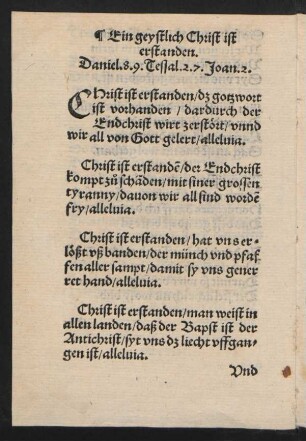 ¶ Ein geystlich Christ ist
erstanden.
Daniel.8.9. Tessal.2.7. Joan.2.
CHrist ist erstanden/dz gotzwort
ist vorhanden / dardurch der
Endchrist wirt zerstört/vnnd
wir all von Gott gelert/alleluia.
Christ ist erstandē/der Endchrist
kompt zů schāden/mit siner grossen
tyranny/dauon wir all sind wordē
fry/alleluia.
Christ ist erstanden/hat vns er-
lößt vß banden/der münch vnd pfaf
fen aller sampt/damit sy vns gener
ret hand/alleluia.
Christ ist erstanden/man weist in
allen landen/daß der Bapst ist der
Antichrist/syt vns dz liecht vffgan-
gen ist/alleluia.
Vnd